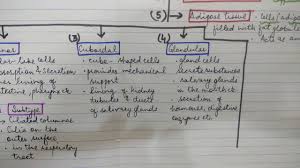 (5) Adipose tissue
- cells/adip
filled with fat globule
- Act as an
(3) Cuboidal
- cube-shaped cells
- provides mechanical
support
- lining of kidney
tubules & ducts
of salivary glands
(4) Glandular
- gland cells
secrete substances
- salivary glands
in the mouth &
- secretion of
hormones, digestive
enzymes etc.
mnar
like cells
sorption & secretion
lining of
Subtype
Ciliated columnar
- Cilia on the
outer surface
- in the respiratory
tract